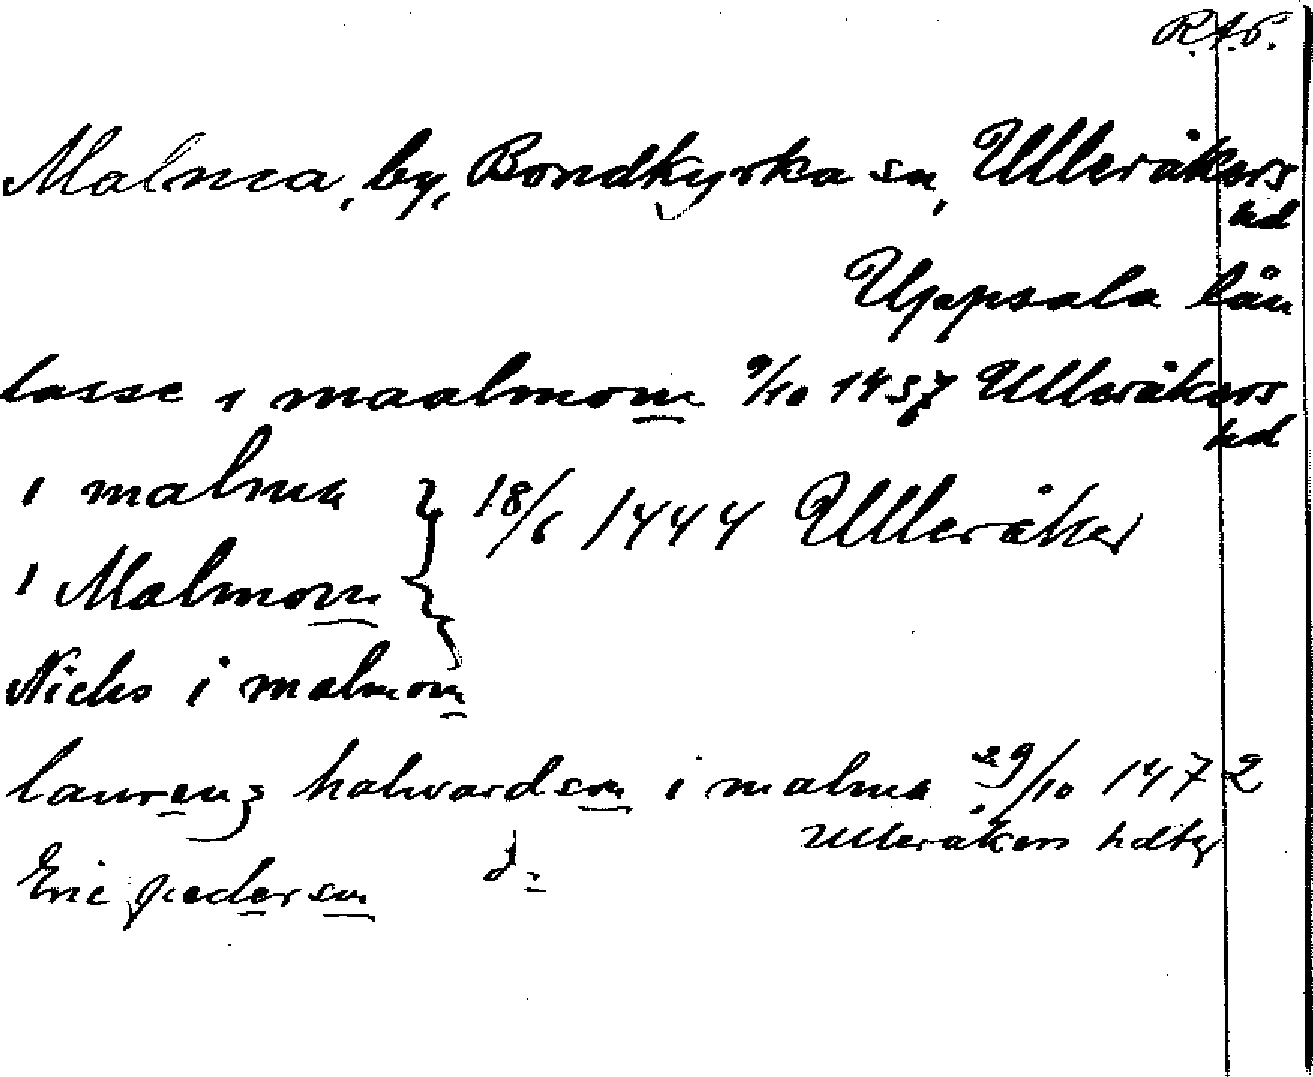 R.A.P.
Malma, by, Bondkyrka sn, Ulleråkers
hd
Uppsala län
lasse i maalmom 9/10 1437 Ulleråkers
hd
i malma
18/6 1444 Ulleråker
i Malmom
Niclis i malmom
laurenz halvardsson i malma 29/10 1472
Ulleråkers hdtg
Eric pedersson d: